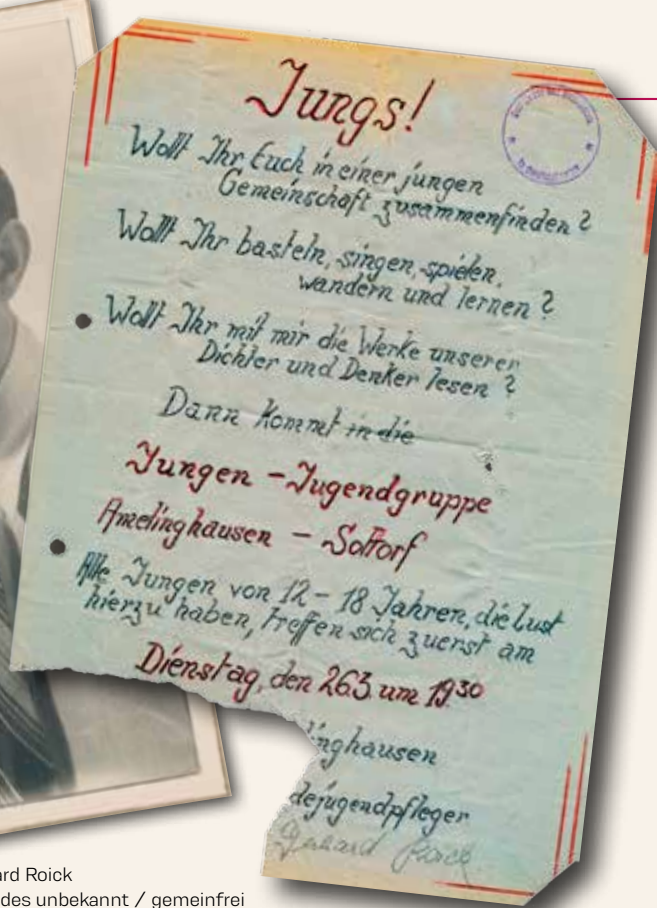 Jungs!
Wollt Ihr Euch in einer jungen
Gemeinschaft zusammenfinden?
Wollt Ihr basteln, singen, spielen,
wandern und lernen?
Wollt Ihr mit mir die Werke unserer
Dichter und Denker lesen?
Dann kommt in die
Jungen - Jugendgruppe
Amelinghausen - Sottorf
Alle Jungen von 12 - 18 Jahren, die lust
hierzu haben, treffen sich zuerst am
Dienstag, den 26.3. um 19³⁰
linghausen
dejugendpfleger
Gerhard Roick
ard Roick
des unbekannt / gemeinfrei